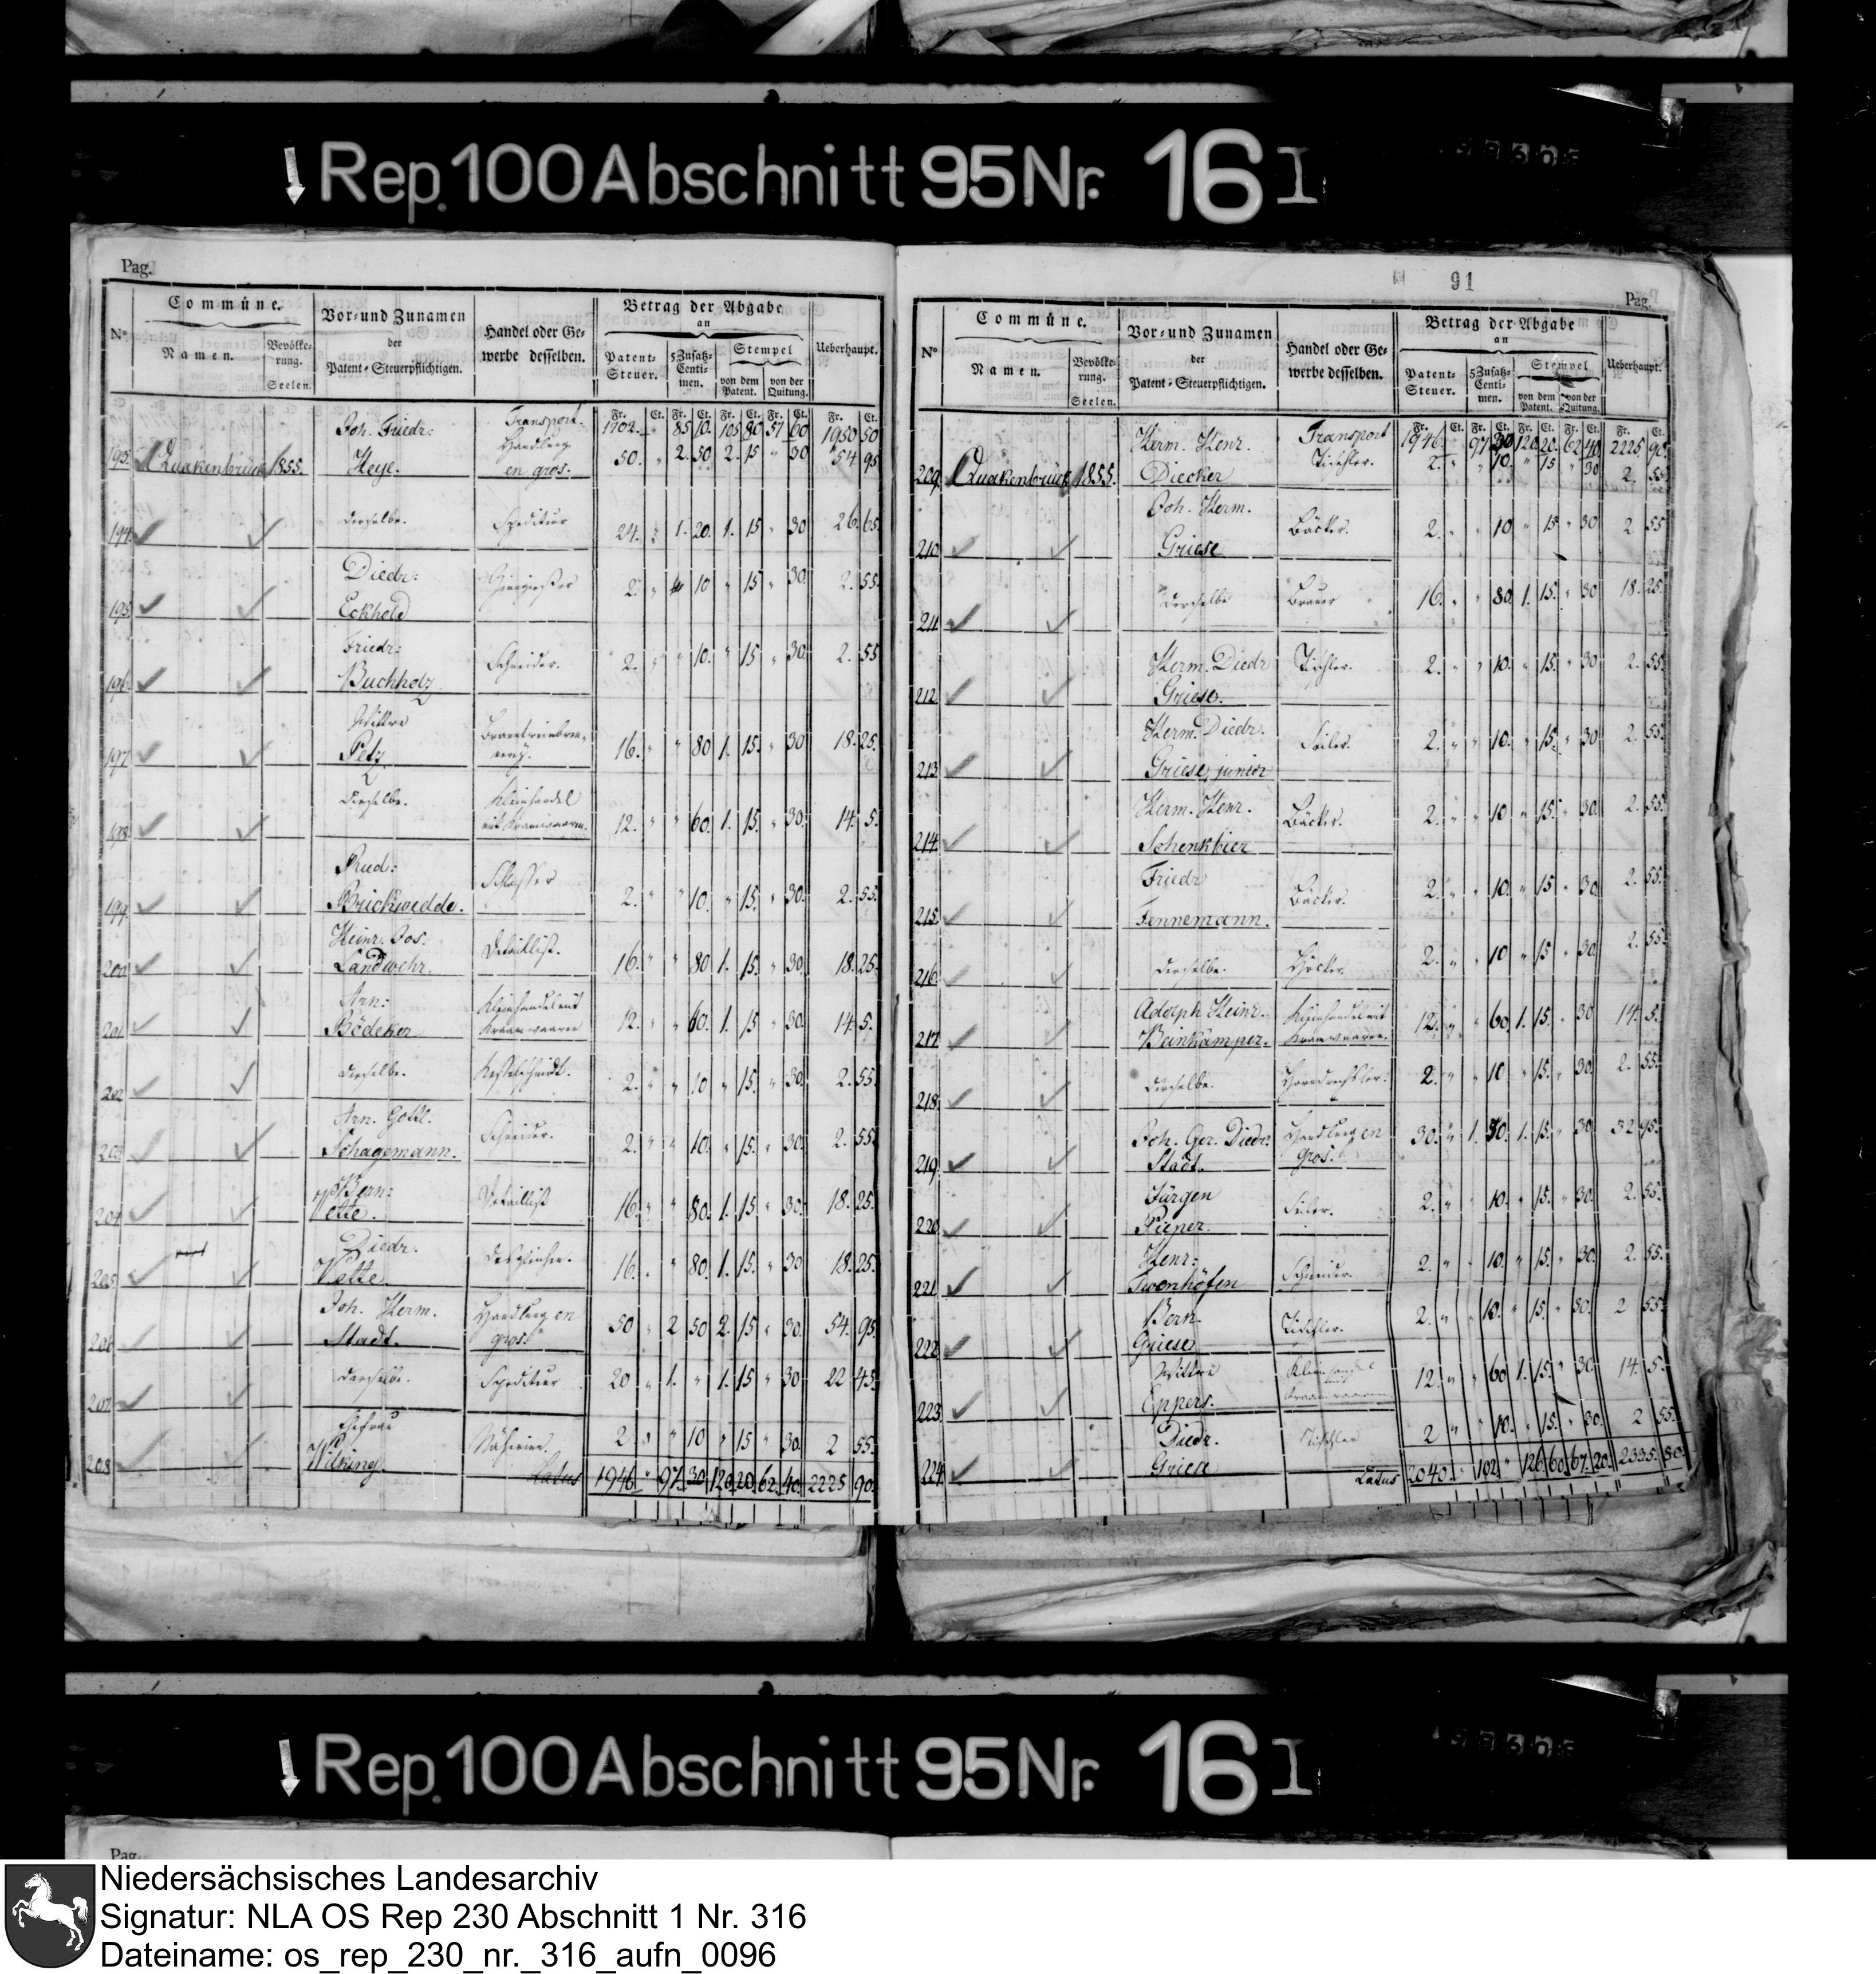 Rep. 100 Abschnitt 95 Nr. 16 I
Pag.
Commüne.
Vor- und Zunamen
Betrag der Abgabe
an
No
Namen.
Bevölke-
rung.
Seelen.
der
Patent-Steuerpflichtigen.
Handel oder Ge-
werbe desselben.
Patent-
Steuer.
5 Zusatz-
Centi-
men.
Stempel
von dem
Patent.
von der
Quitung.
Ueberhaupt.
Fr. Ct. Fr. Ct. Fr. Ct. Fr. Ct. Fr. Ct.
Transport. 1702. " 85 10. 105 80 57 60 1950 50
Joh. Friedr: Handlung
193. Quakenbrück 1855. Heye. en gros. 50. " 2. 50 2. 15 " 30 54. 95
194. derselbe. Spediteur 24. " 1. 20. 1. 15 " 30 26. 65
Diedr:
195. Eckhold 2. " " 10 " 15 " 30. 2. 55.
Friedr:
196. Buchholz Schneider. 2. " " 10. " 15 " 30. 2. 55
Wittwe
197. Petz Branntweinbren-
nerey. 16. " " 80 1. 15. " 30 18. 25.
198. dieselbe. Kleinhandel
mit Kramwaaren. 12. " " 60. 1. 15. " 30. 14. 5.
Rud:
199. Brickwedde. Schlosser 2. " " 10. " 15. " 30. 2. 55.
Heinr. Jos.
200. Landwehr. Detaillist. 16. " " 80 1. 15. " 30 18. 25.
Arn: Kleinhandel mit
201. Bödeker Kramwaaren 12. " " 60. 1. 15 " 30. 14. 5.
202 derselbe. Kesselschmidt. 2. " " 10 " 15. " 30. 2. 55.
Arn. Gottl.
203 Schagemann. Schneider. 2. " " 10. " 15. " 30. 2. 55
Bern:
204 Vette. Detaillist 16. " " 80. 1. 15 " 30. 18. 25.
Diedr.
205. Vette. desgleichen. 16. " " 80. 1. 15. " 30 18. 25.
Joh. Herm. Handlung en
206 Stadt. gros. 50 " 2 50 2. 15 " 30. 54. 95.
207 derselbe. Spediteur 20 " 1. " 1. 15 " 30 22 45.
Ehefrau
208 Wilking. Näherin. 2. " " 10 " 15 " 30. 2 55.
Latus 1946. " 97. 30. 120. 20. 62. 40. 2225 90.
91
Pag.
Commüne.
Vor- und Zunamen
Betrag der Abgabe
an
No
Namen.
Bevölke-
rung.
Seelen.
der
Patent-Steuerpflichtigen.
Handel oder Ge-
werbe desselben.
Patent-
Steuer.
5 Zusatz-
Centi-
men.
Stempel
von dem
Patent.
von der
Quitung.
Ueberhaupt.
Fr. Ct. Fr. Ct. Fr. Ct. Fr. Ct. Fr. Ct.
Transport 1946. " 97 30 120. 20. 62 40 2225 90.
Herm. Henr.
209. Quakenbrück 1855. Diecker Tischler. 2. " " 10. " 15 " 30 2. 55.
Joh. Herm.
210 Griese Bäcker. 2. " " 10 " 15 " 30 2 55
211 derselbe Brauer 16. " " 80. 1. 15. " 30 18. 25.
Herm. Diedr
212 Griese. Tischler. 2. " " 10. " 15. " 30 2. 55.
Herm. Diedr.
213 Griese junior Seiler. 2. " " 10. " 15. " 30 2. 55.
Herm. Henr.
214 Schenkbier Bäcker. 2. " " 10 " 15. " 30. 2. 55.
Friedr
215. Fennemann. Bäcker. 2. " " 10. " 15 " 30. 2. 55.
216. derselbe. Höcker. 2. " " 10 " 15 " 30. 2. 55.
Adolph Heinr. Kleinhandel mit
217. Beinkämper. Kramwaaren. 12. " " 60. 1. 15. " 30. 14. 5.
218. derselbe. Horndrechsler. 2. " " 10 " 15. " 30. 2. 55.
Joh. Ger. Diedr. Handlung en
219. Stadt. gros. 30. " 1. 50. 1. 15. " 30 32. 95.
Jürgen
220 Pieper. Seiler. 2. " " 10. " 15. " 30. 2. 55.
Henr:
221 Twenhöfen Schneider. 2. " " 10. " 15. " 30. 2. 55.
Bern.
222 Griese Tischler. 2. " " 10. " 15. " 30. 2 55.
Wittwe Kleinhandel
223. Eppers. Kramwaaren 12. " " 60 1. 15. " 30. 14. 5.
Diedr.
224. Griese Tischler 2 " " 10. " 15. " 30. 2 55.
Latus 2040. " 102. " 126. 60. 67. 20. 2335. 80.
Rep. 100 Abschnitt 95 Nr. 16 I
Pag.
Niedersächsisches Landesarchiv
Signatur: NLA OS Rep 230 Abschnitt 1 Nr. 316
Dateiname: os_rep_230_nr._316_aufn_0096